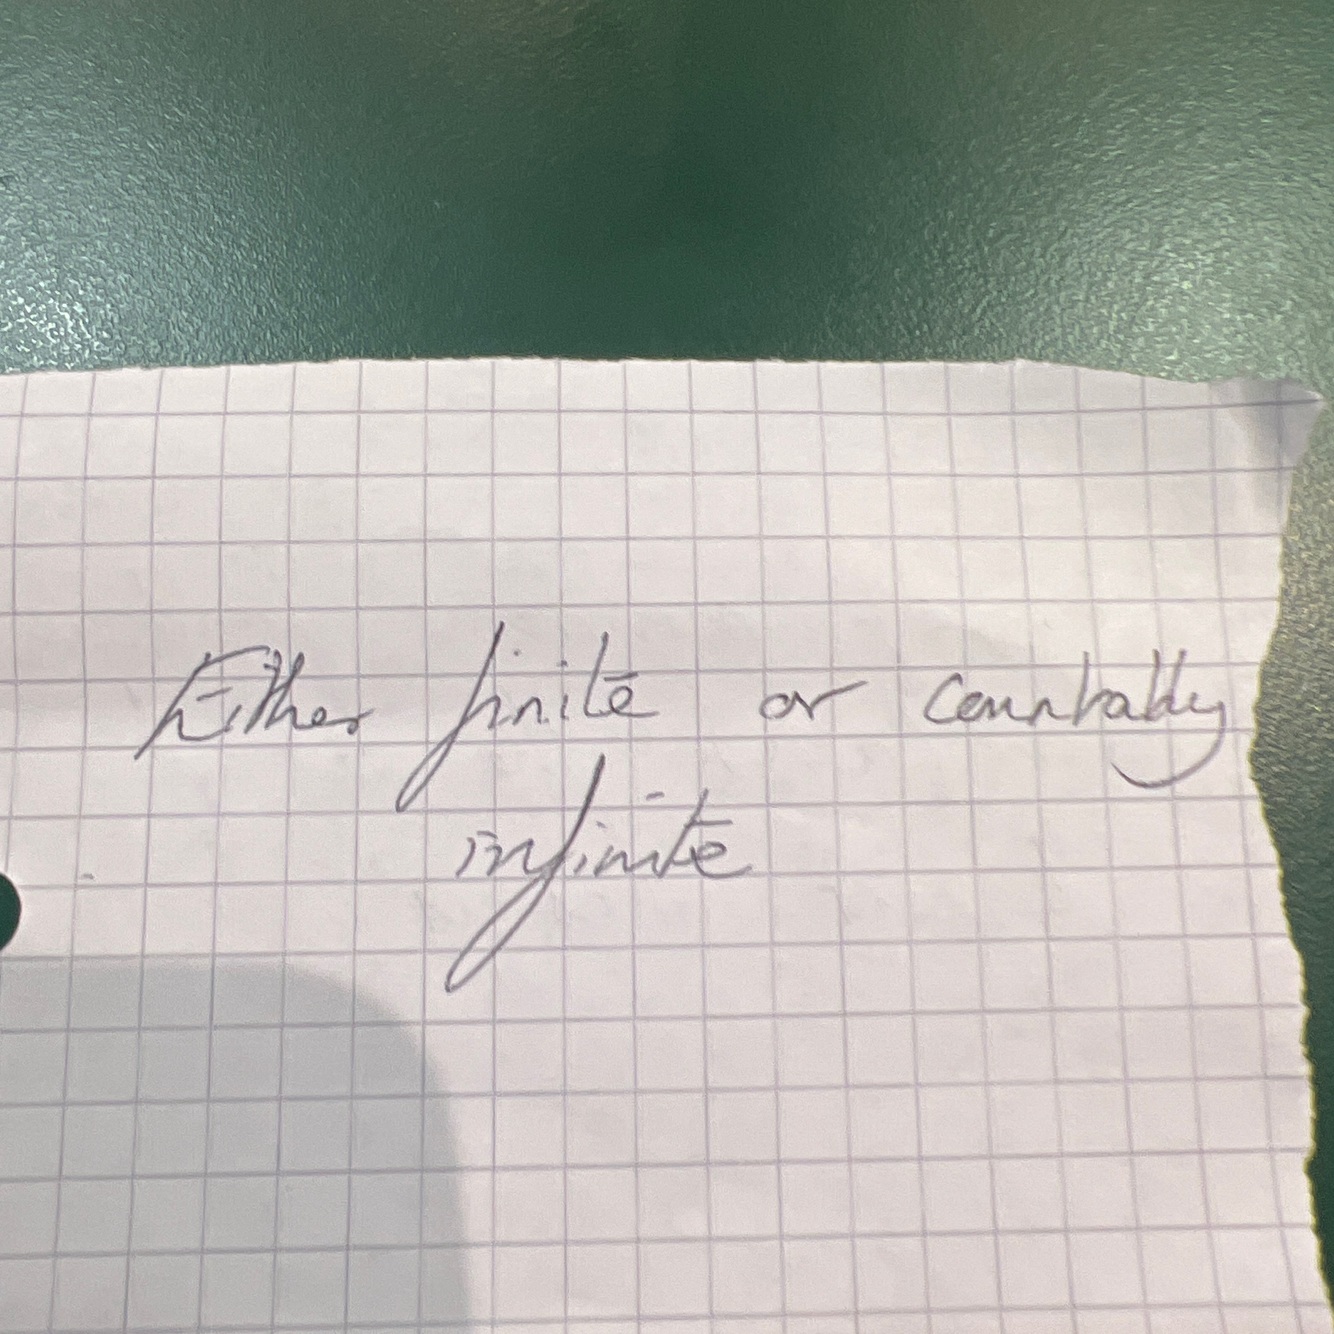 Either finite or countably
infinite